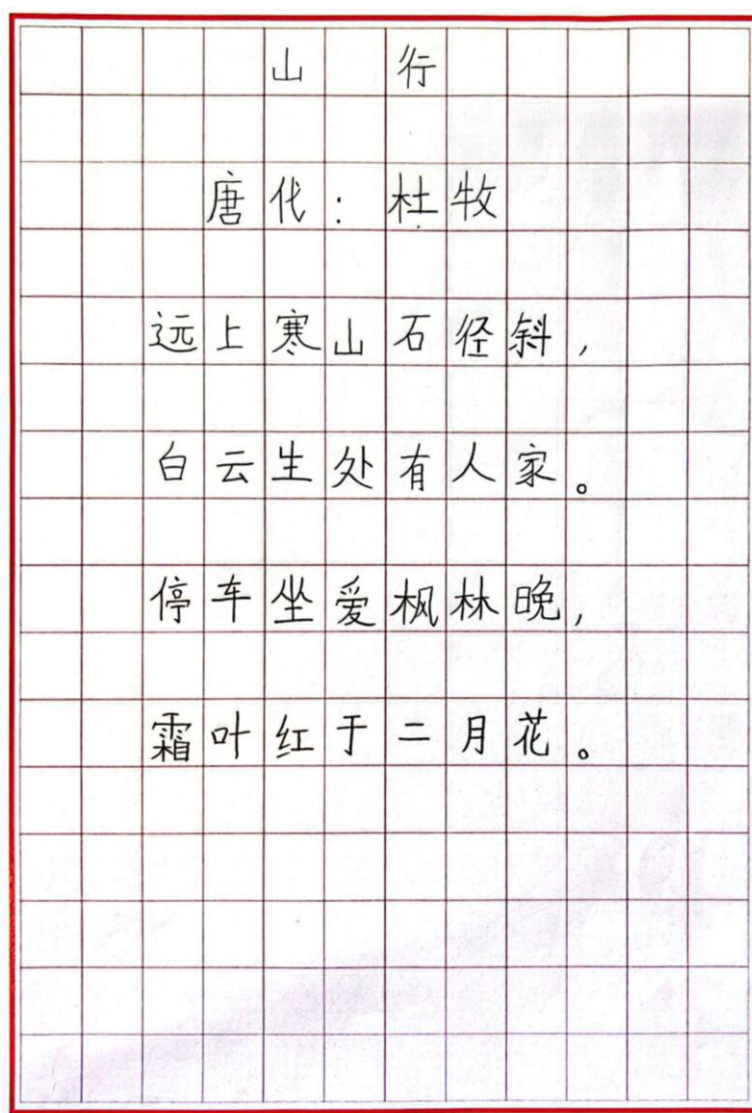 山 行
唐代：杜牧
远上寒山石径斜，
白云生处有人家。
停车坐爱枫林晚，
霜叶红于二月花。